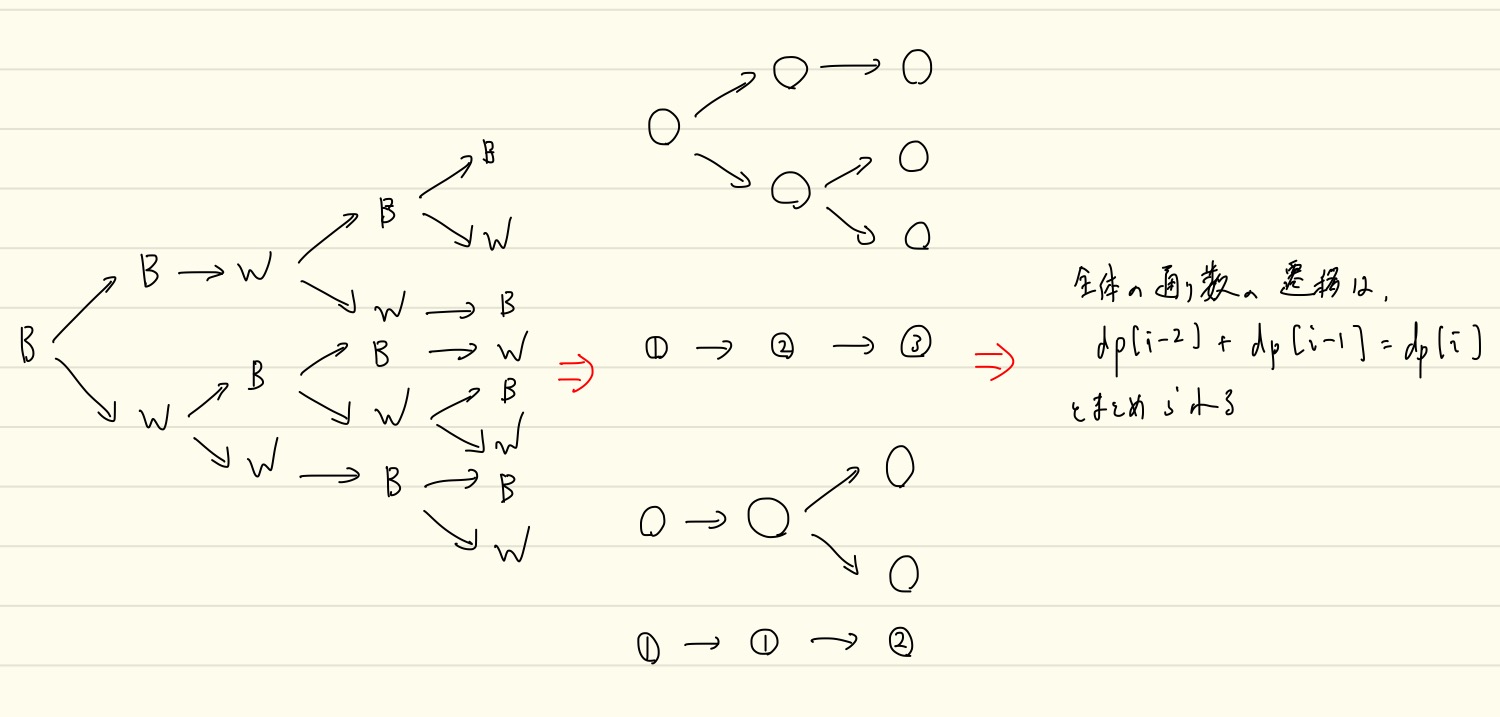 B
B → W
B
B
W
W → B
W
B
B → W
W
B
W
W → B
B
W
① → ② → ③
① → ① → ②
全体の通り数の遷移は、
dp[i-2] + dp[i-1] = dp[i]
とまとめられる